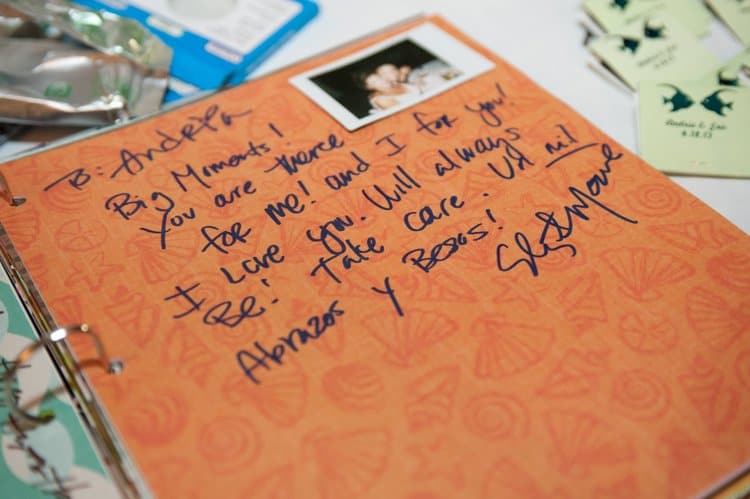 To: Andria
Big Moments!
You are there
for me! and I for you!
I Love you. Will always
Be! Take care.
Abrazos y Besos!
Andria &